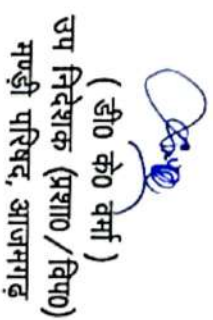 ( डी० के० वर्मा )
उप निदेशक (प्रशा० / विप०)
मण्डी परिषद, आजमगढ़